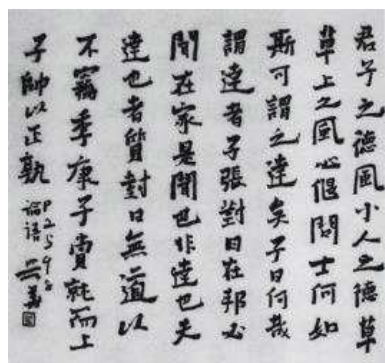 君子之德風小人之德草
草上之風必偃問士何如
斯可謂之達矣子曰何哉
謂達者子張對曰在邦必
聞在家是聞也非達也夫
達也者質對曰無道以
不竊季康子賞就而上
子帥以正孰 論語 P2598